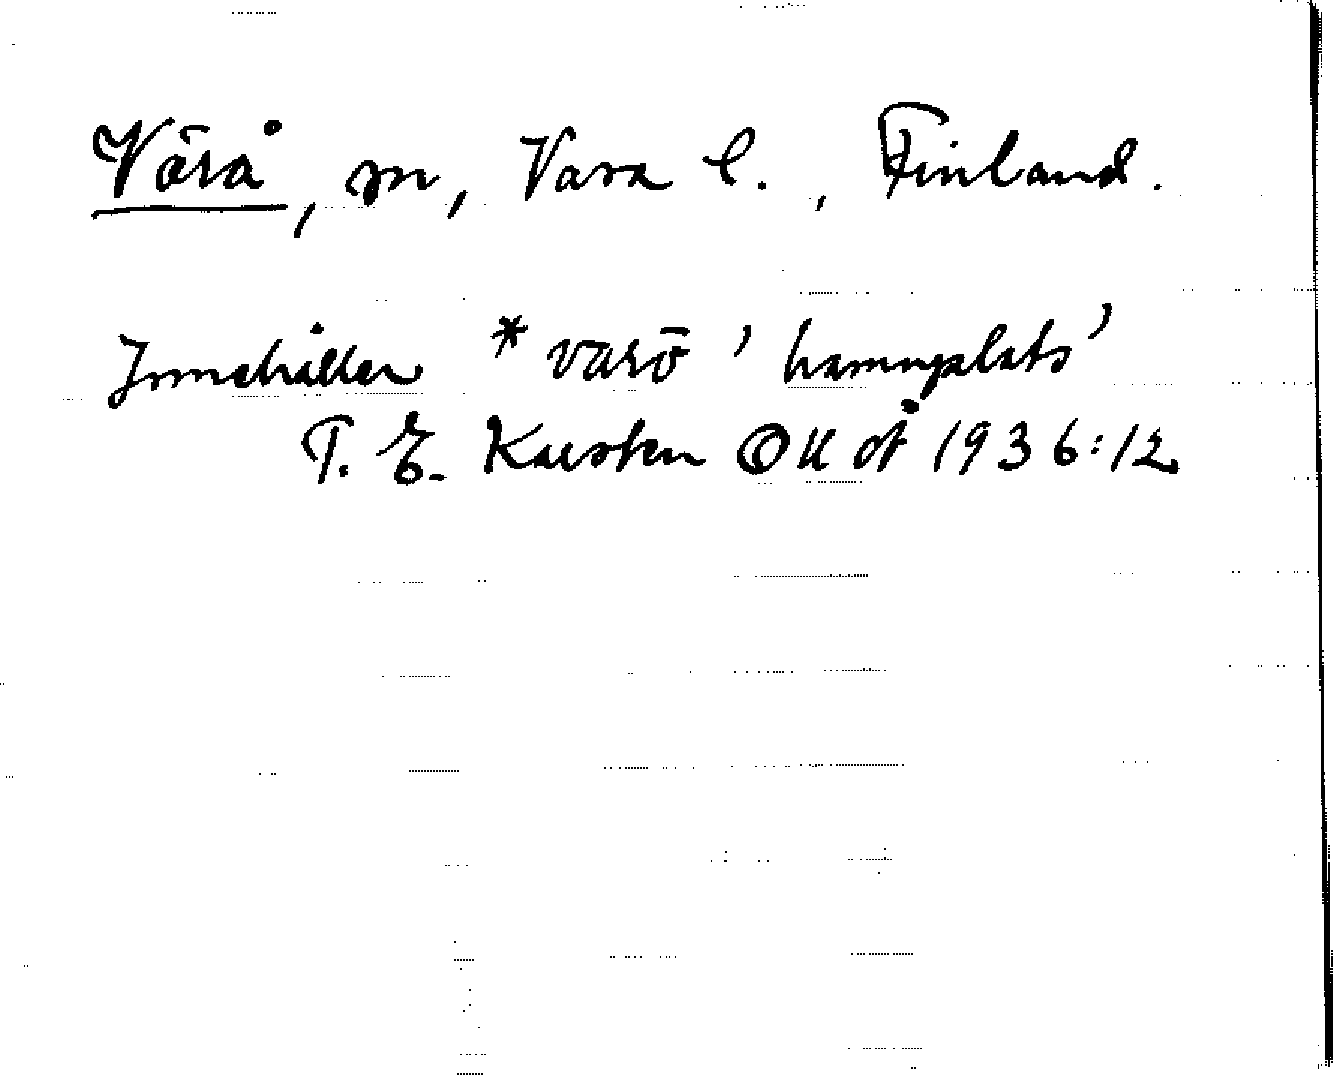 Vörå, sn, Vasa l., Finland.
Innehåller *varō 'hamnplats'
T. E. Karsten OUÅ 1936:12